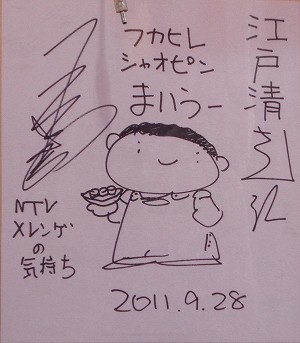 江戸清さん江
フカヒレ
シャオピン
まいうー
NTV
メレンゲ
の
気持ち
2011.9.28